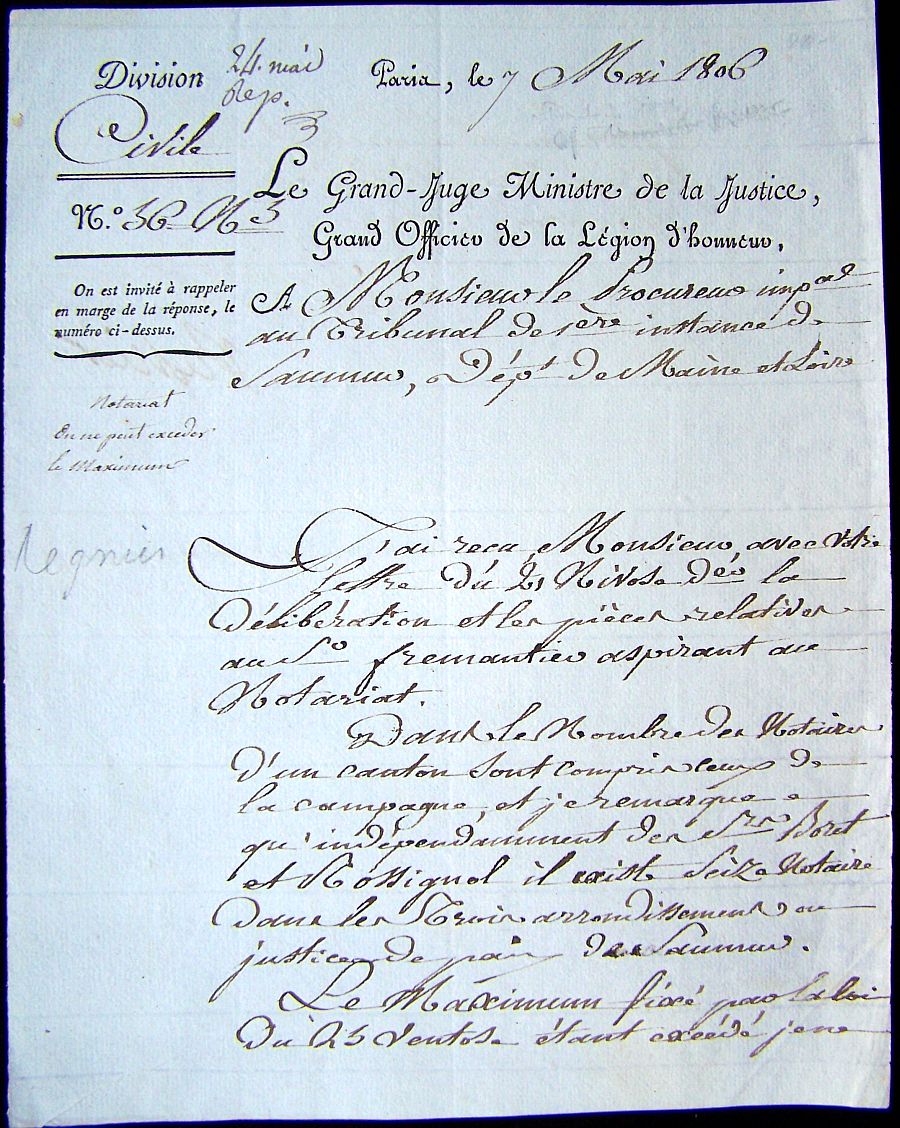 Division
Civile
24. mai
Rep.
Paris, le 7 Mai 1806
N.º 36 N 3
On est invité à rappeler
en marge de la réponse, le
numéro ci-dessus.
Notariat
On ne peut excéder
le Maximum
Regnier
Le Grand-Juge Ministre de la Justice,
Grand Officier de la Légion d'honneur,
A Monsieur le Procureur impal
au Tribunal de 1ere instance de
Saumur, Dépt de Maine et Loire
J'ai reçu, Monsieur, avec votre
lettre du 21 Nivose der la
Délibération et les pièces relatives
au Sr fremantier aspirant au
Notariat.
Dans le Nombre des Notaires
d'un canton sont compris ceux de
la campagne, et je remarque
qu'indépendamment des Srs Boret
et Rossignol il existe seize Notaire
dans les Trois arrondissements ou
justices de paix de Saumur.
Le Maximum fixé par la loi
du 25 Ventose étant excédé je ne